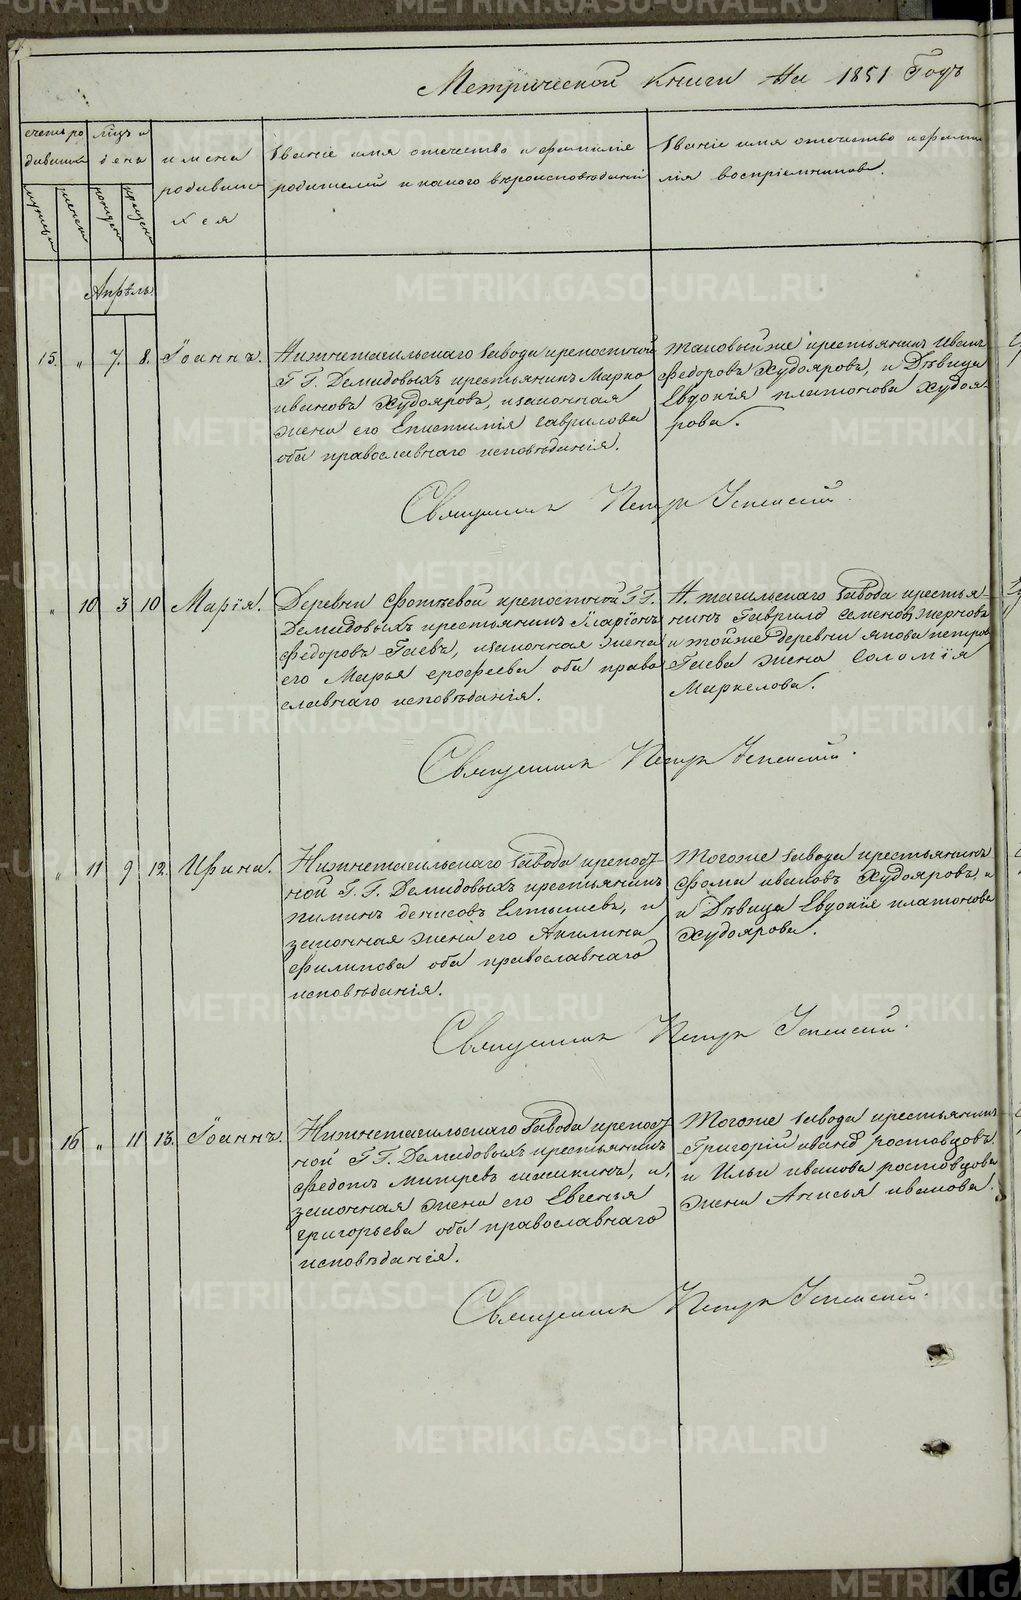 Метрической Книги На 1851 Годъ
счетъ родившихся
мужеска
женска
лицъ и день
рожденія
крещенія
имена родившихся
Званіе имя отечество и фамиліе
родителей и какого вѣроисповѣданія
Званіе имя отечество и фамилія воспріемниковъ.
Апрѣль
15. „ 7. 8. Іоаннъ.
Нижнетагильскаго Завода крепостной
Г. Г. Демидовыхъ крестьянинъ Марко
ивановъ Худояровъ, и законная
жена его Епистимія гаврилова
оба православнаго исповѣданія.
таковый же крестьянинъ Иванъ
Федоровъ Худояровъ, и Дѣвица
Евдокія платонова Худоя-
рова.
Священникъ Петръ Успенскій.
„ 10 3 10 Марія.
Деревни Фотѣевой крепостной Г. Г.
Демидовыхъ крестьянинъ Иларіонъ
Федоровъ Гаевъ, и законная жена
его Марья ерофеева оба право
славнаго исповѣданія.
Н. тагильскаго Завода крестья-
нинъ Гаврило Семеновъ
и той же деревни якова петрова
Гаева жена Соломія
Маркелова.
Священникъ Петръ Успенскій.
„ 11 9 12. Ирина.
Нижнетагильскаго Завода крепост-
ной Г. Г. Демидовыхъ крестьянинъ
пиминъ денисовъ и
законная жена его Акилина
Филипова оба православнаго
исповѣданія.
Тогоже завода крестьянинъ
Фома ивановъ Худояровъ, и
и Дѣвица Евдокія платонова
Худоярова.
Священникъ Петръ Успенскій.
16 „ 11 13. Іоаннъ.
Нижнетагильскаго Завода крепост-
ной Г. Г. Демидовыхъ крестьянинъ
Федотъ митревъ и,
законная жена его Евгенья
григорьева оба православнаго
исповѣданія.
Тогоже завода крестьянинъ
Григорій ивановъ ростовцовъ
и Ильи иванова ростовцова
жена Анисья иванова.
Священникъ Петръ Успенскій.
METRIKI.GASO-URAL.RU